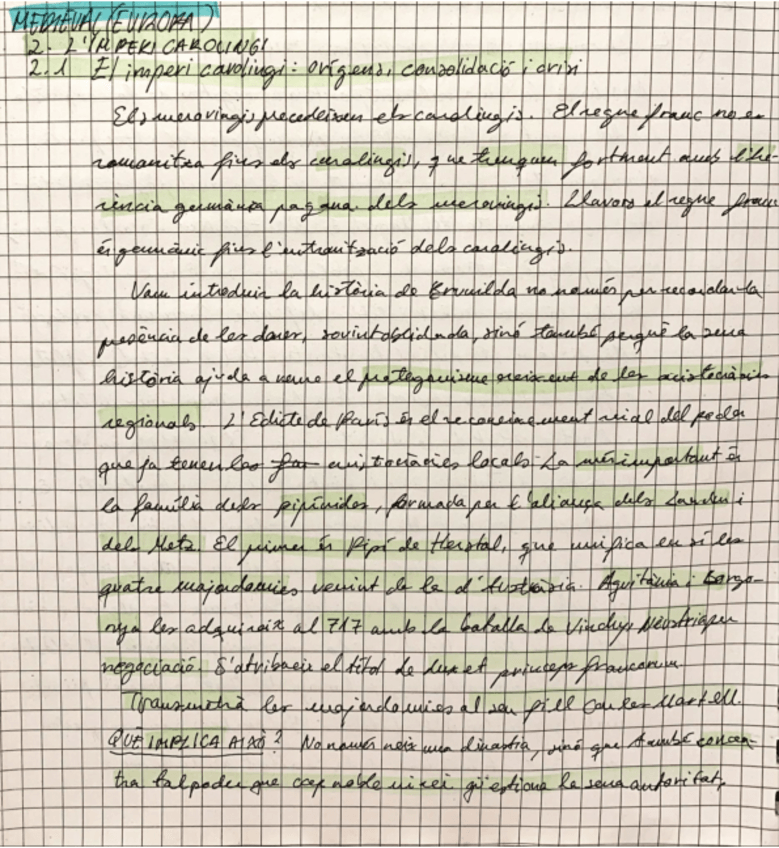 MEDIEVAL (EUROPA)
2. L'IMPERI CAROLINGI
2.1 El imperi carolingi: orígens, consolidació i crisi
Els merovingis precedeixen els carolingis. El regne franc no es
romanitza fins els carolingis, que trenquen fortment amb l'he-
rència germànica pagana dels merovingis. Llavors el regne franc
és germànic fins l'entronització dels carolingis.
Vam introduir la història de Brunilda no només per recordar la
presència de les dones, sovint oblidada, sinó també perquè la seua
història ajuda a veure el protagonisme creixent de les aristocràcies
regionals. L'Edicte de París és el reconeixement reial del poder
que ja tenen les aristocràcies locals. La més important és
la família dels pipínides, formada per l'aliança dels Landen i
dels Metz. El primer és Pipí de Herstal, que unifica en sí les
quatre majordomies venint de la d'Austràsia. Aquitània i Borgo-
nya les adquireix al 717 amb la batalla de Vinchy, Nèustria per
negociació. S'atribueix el títol de dux et princeps francorum.
Transmetrà les majordomies al seu fill Carles Martell.
QUÈ IMPLICA AIXÒ? No només neix una dinastia, sinó que també concen-
tra tal poder que cap noble ni rei qüestiona la seua autoritat,